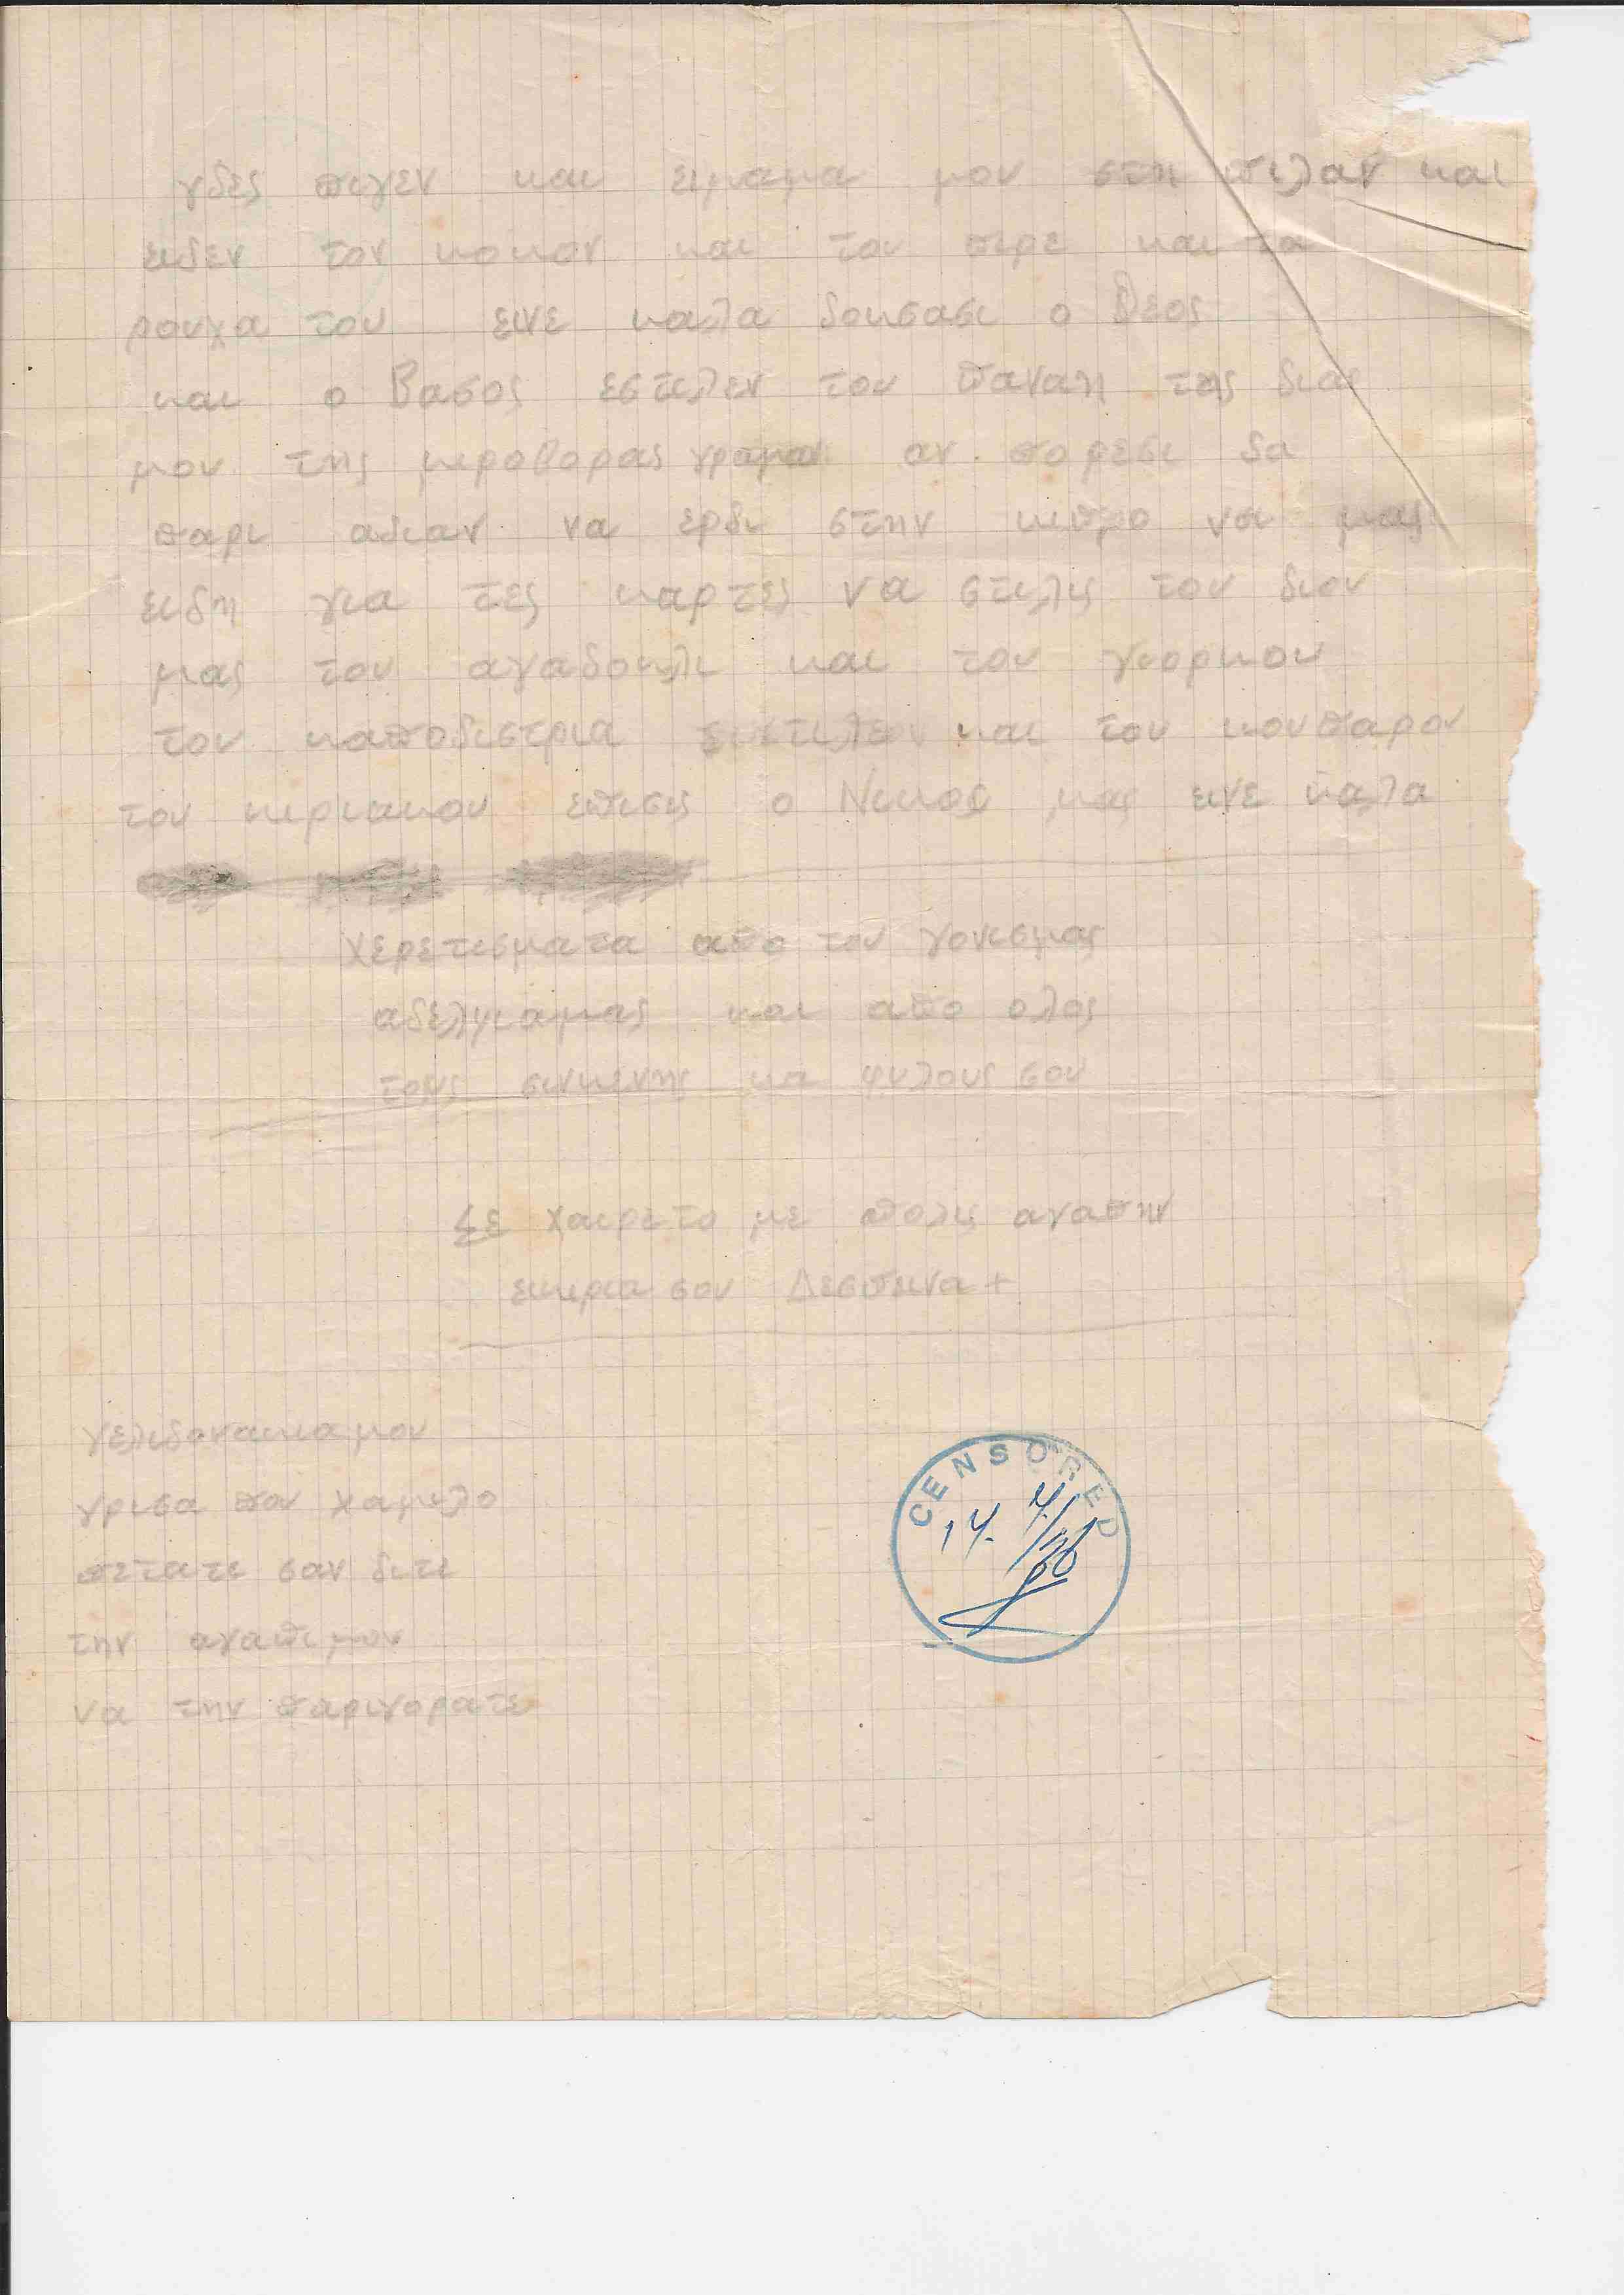 γδες πιγεν και ειμαμα μου στη πιλαν και
ειδεν τον κοκον και του πιρε και τα
ρουχα του εινε καλα δοκσασι ο θεος
και ο Βασος εστιλεν του παναη της διας
μου της μιροφορας γραμαν αν πορεσι δα
παρι αδιαν να ερδι στην κιπρο νσι μας
ειδη για τες καρτες να στιλις του διου
μας του αγαδοκλι και του γιορκου
του καποδιστρια και του κουπαρου
του κιριακου επισις ο Νικος μας εινε καλα
χερετισματα απο του γονισμας
αδελφιαμας και απο ολος
τους σινκενης κα φυλους σου
Σε χαιρετο με πολις αγαπην
εικιρια σου Δεσπινα+
γελιδονακιαμου
γρισα που χαμιλο
πετατε σαν διτε
την αγαπιμου
να την παριγορατε
CENSORED
14. 4/56